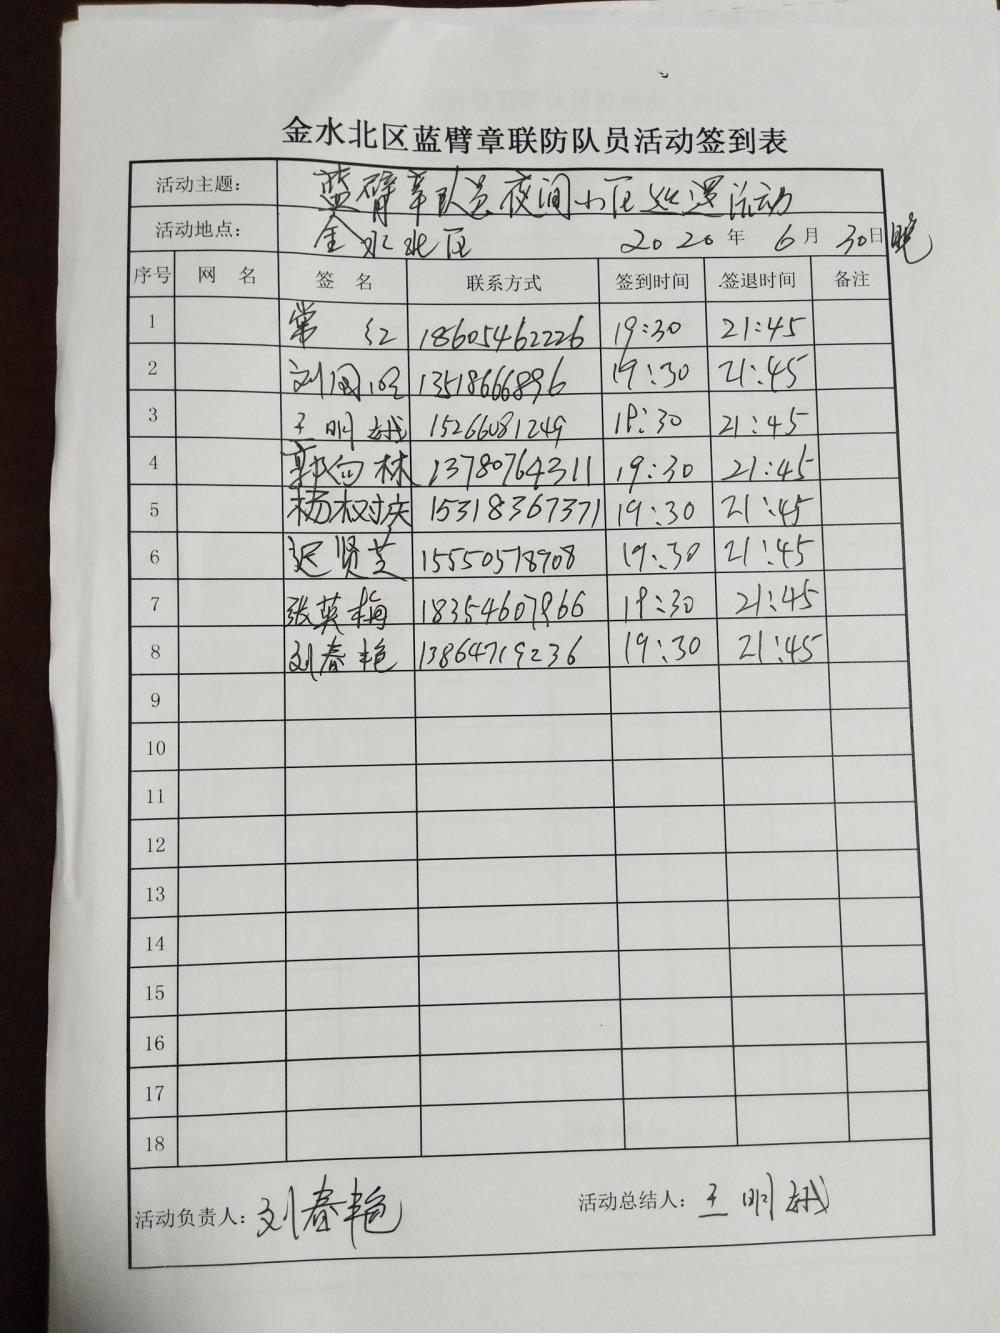 金水北区蓝臂章联防队员活动签到表
活动主题： 蓝臂章队员夜间小区巡逻活动
活动地点： 金水北区 2020 年 6 月 30 日 晚
序号 网 名 签 名 联系方式 签到时间 签退时间 备注
1 常 红 18605462226 19:30 21:45
2 刘国 13518666896 19:30 21:45
3 王明娥 15266081249 19:30 21:45
4 郭向林 13780764311 19:30 21:45
5 杨树庆 15318367371 19:30 21:45
6 迟贤芝 15550578908 19:30 21:45
7 张英梅 18354607966 19:30 21:45
8 刘春艳 13864719236 19:30 21:45
9
10
11
12
13
14
15
16
17
18
活动负责人： 刘春艳 活动总结人： 王明娥